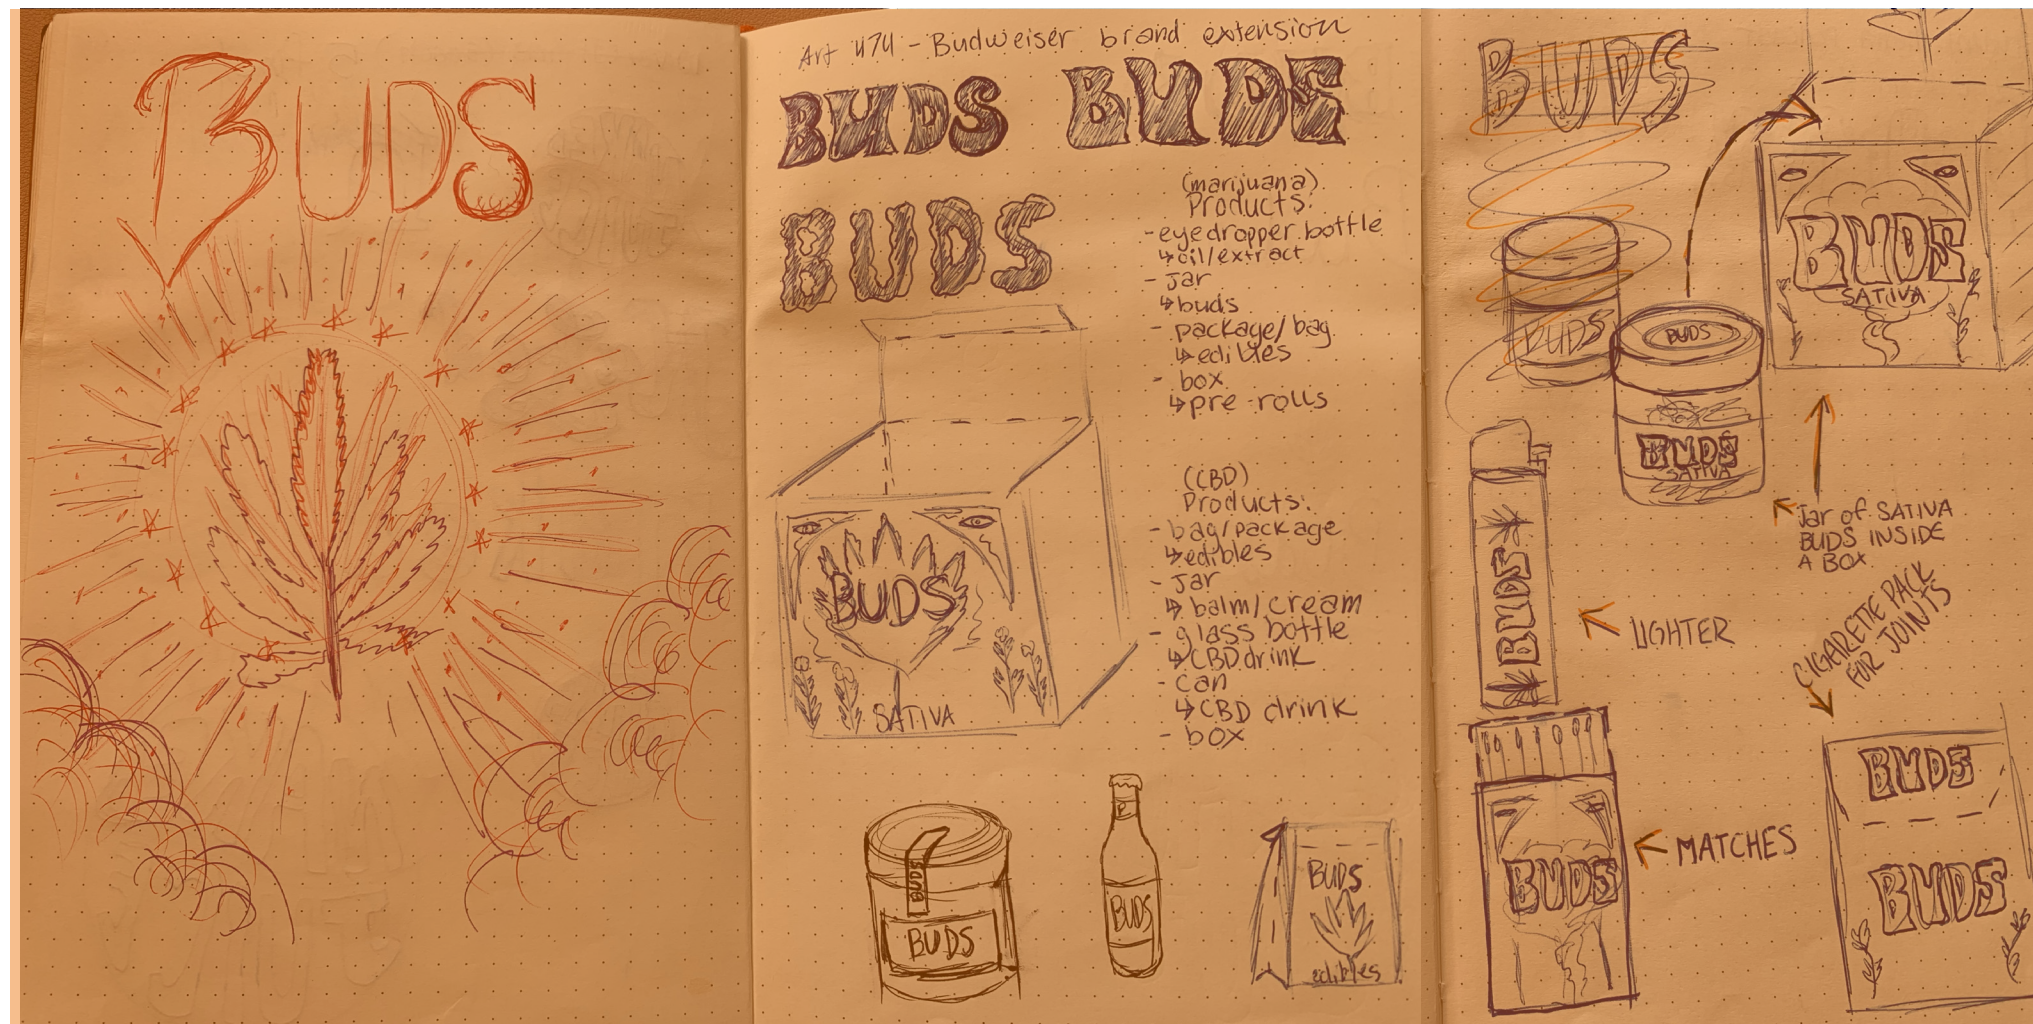 BUDS
Art 474 - Budweiser brand extension
BUDS BUDS
BUDS
(marijuana)
Products:
- eyedropper bottle
↳ oil/extract
- jar
↳ buds
- package/bag
↳ edibles
- box
↳ pre-rolls
(CBD)
Products:
- bag/package
↳ edibles
- jar
↳ balm/cream
- glass bottle
↳ CBD drink
- can
↳ CBD drink
- box
BUDS
SATIVA
BUDS
BUDS
BUDS
BUDS
edibles
BUDS
BUDS
SATIVA
BUDS
BUDS
BUDS
SATIVA
Jar of SATIVA
BUDS INSIDE
A BOX
BUDS
LIGHTER
CIGARETTE PACK
FOR JOINTS
BUDS
MATCHES
BUDS
BUDS